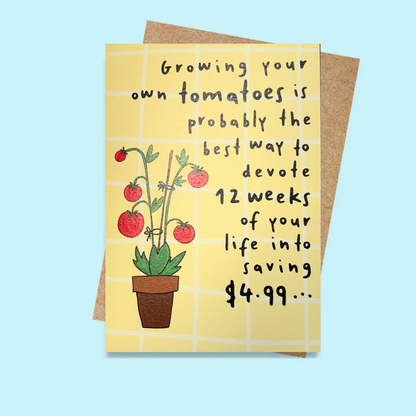 Growing your
own tomatoes is
probably the
best way to
devote
12 weeks
of your
life into
saving
$4.99...